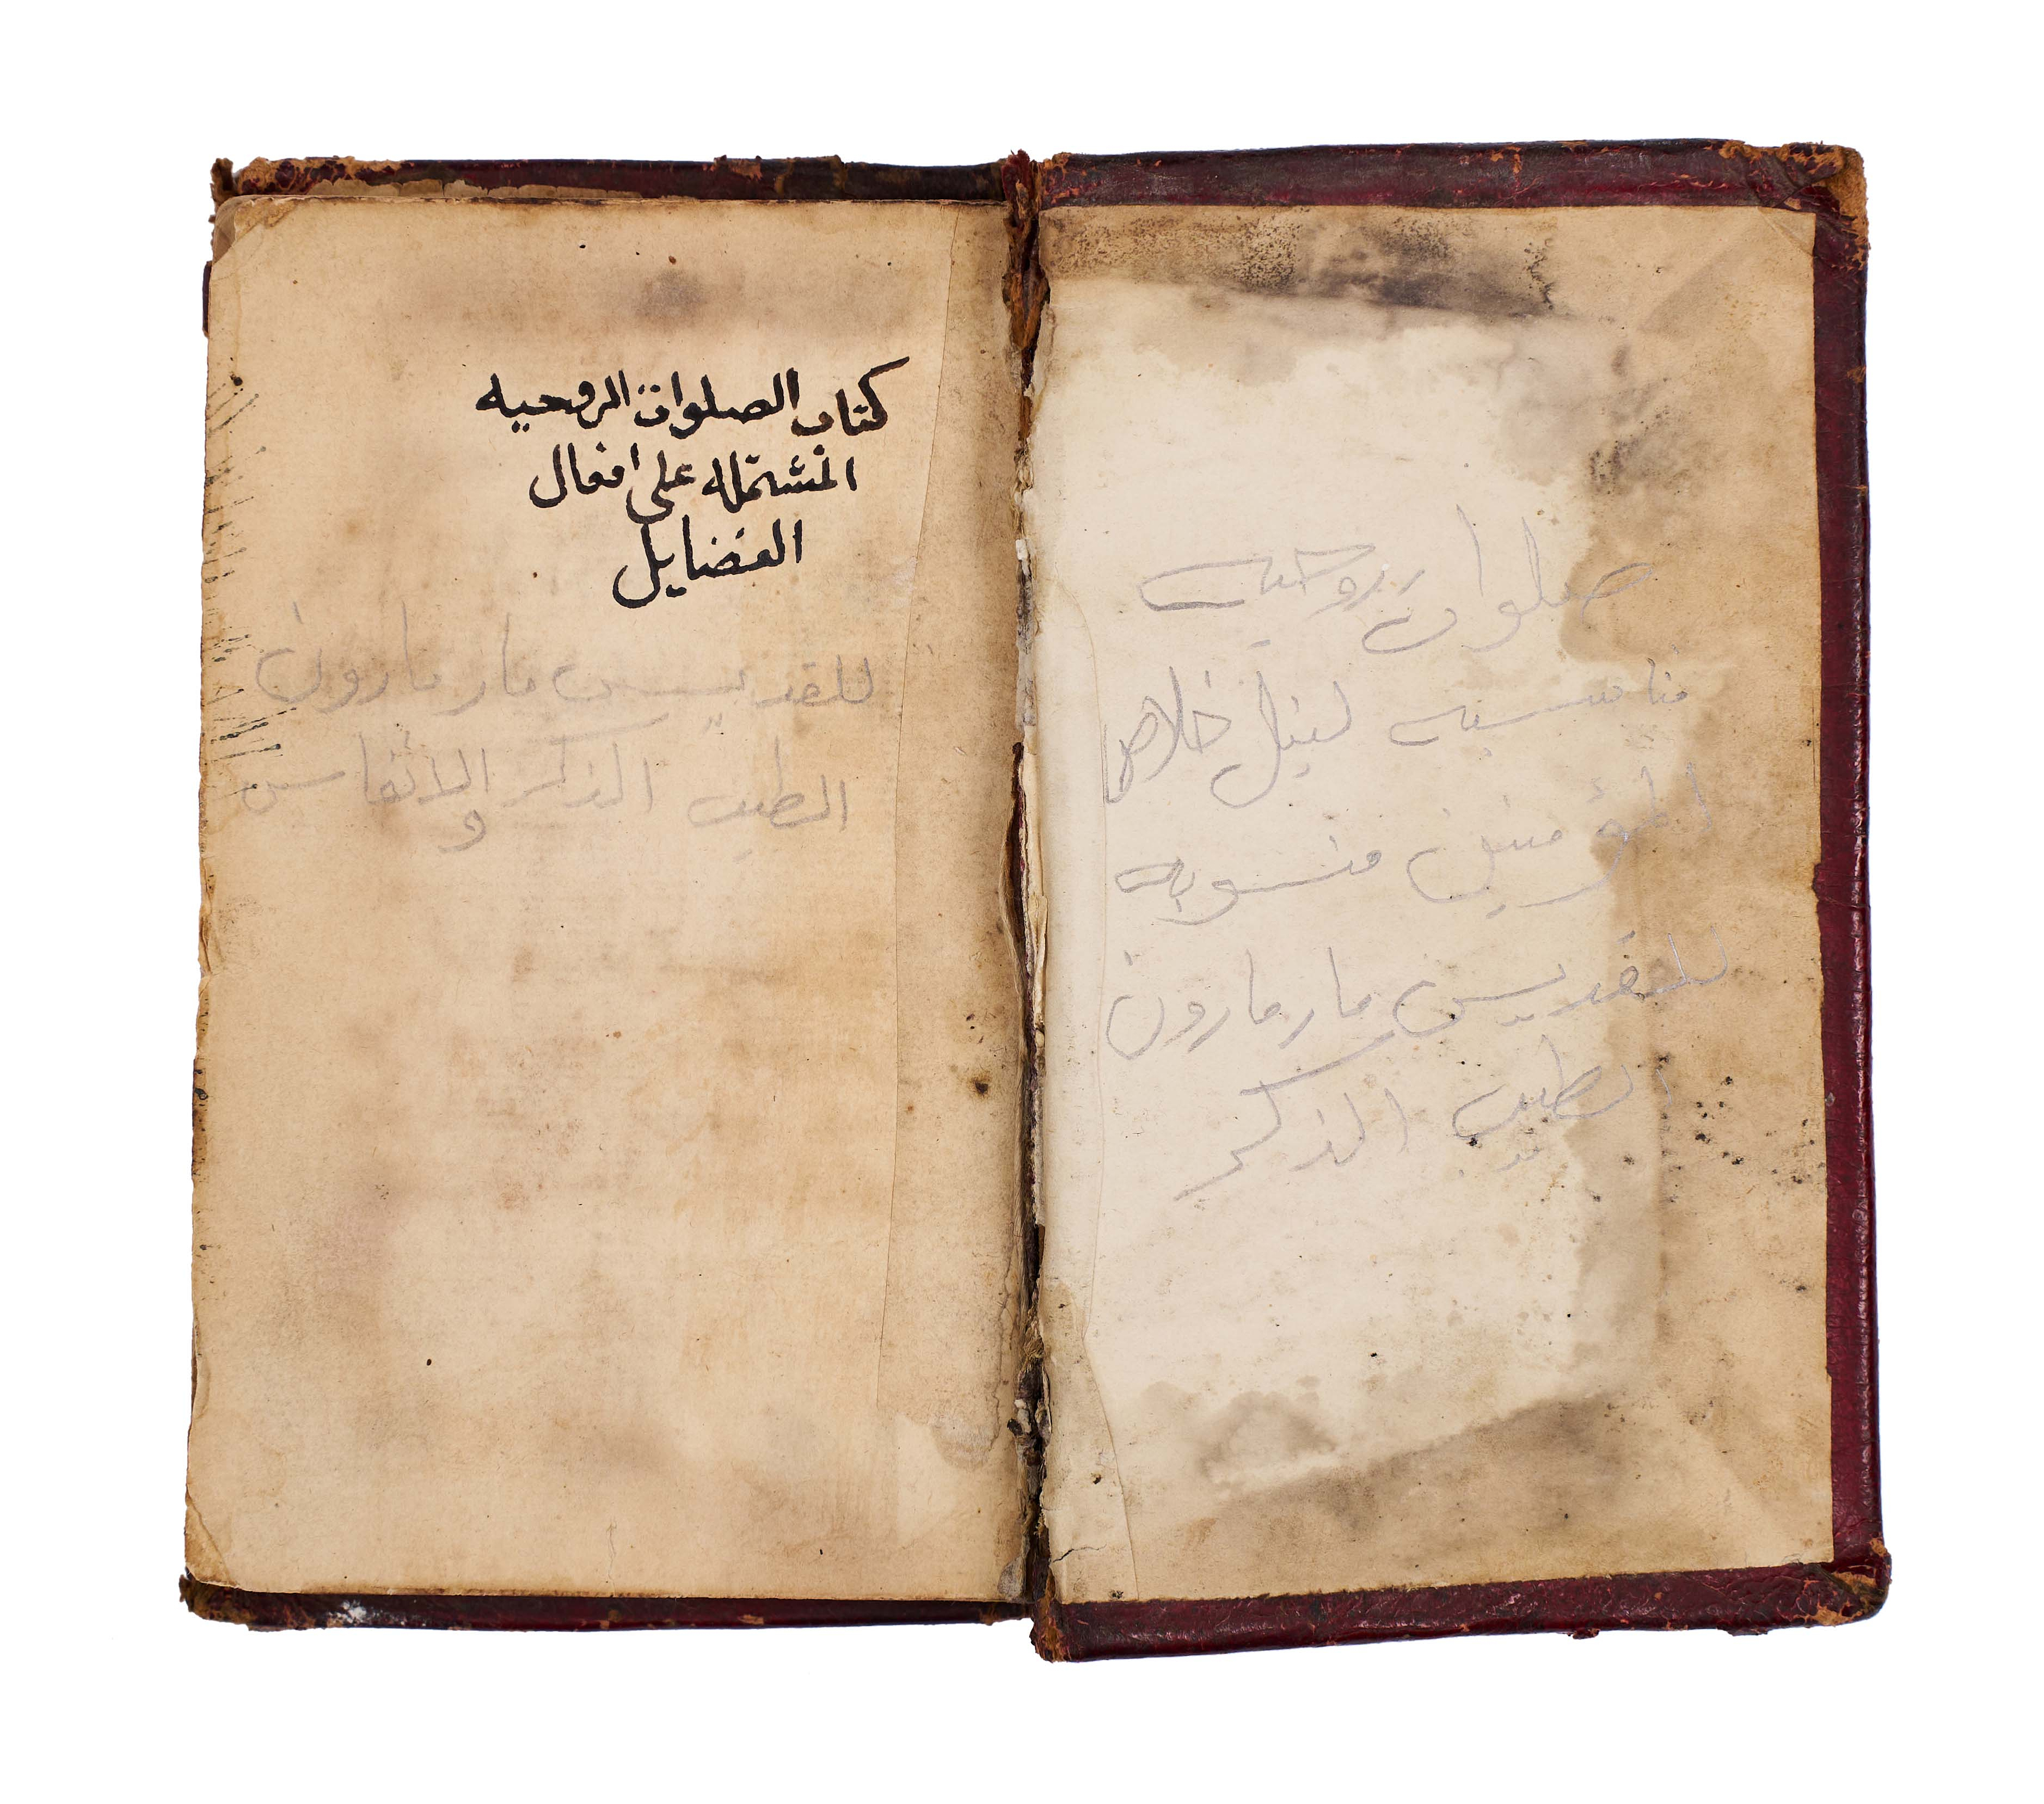 صلوات روحيه
مناسبه لنيل خلاص
المؤمنين منسوبه
للقديس مار مارون
الطيب الذكر
كتاب الصلوات الروحيه
المشتمله على افعال
الفضايل
للقديس مار مارون
الطيب الذكر والانفاس